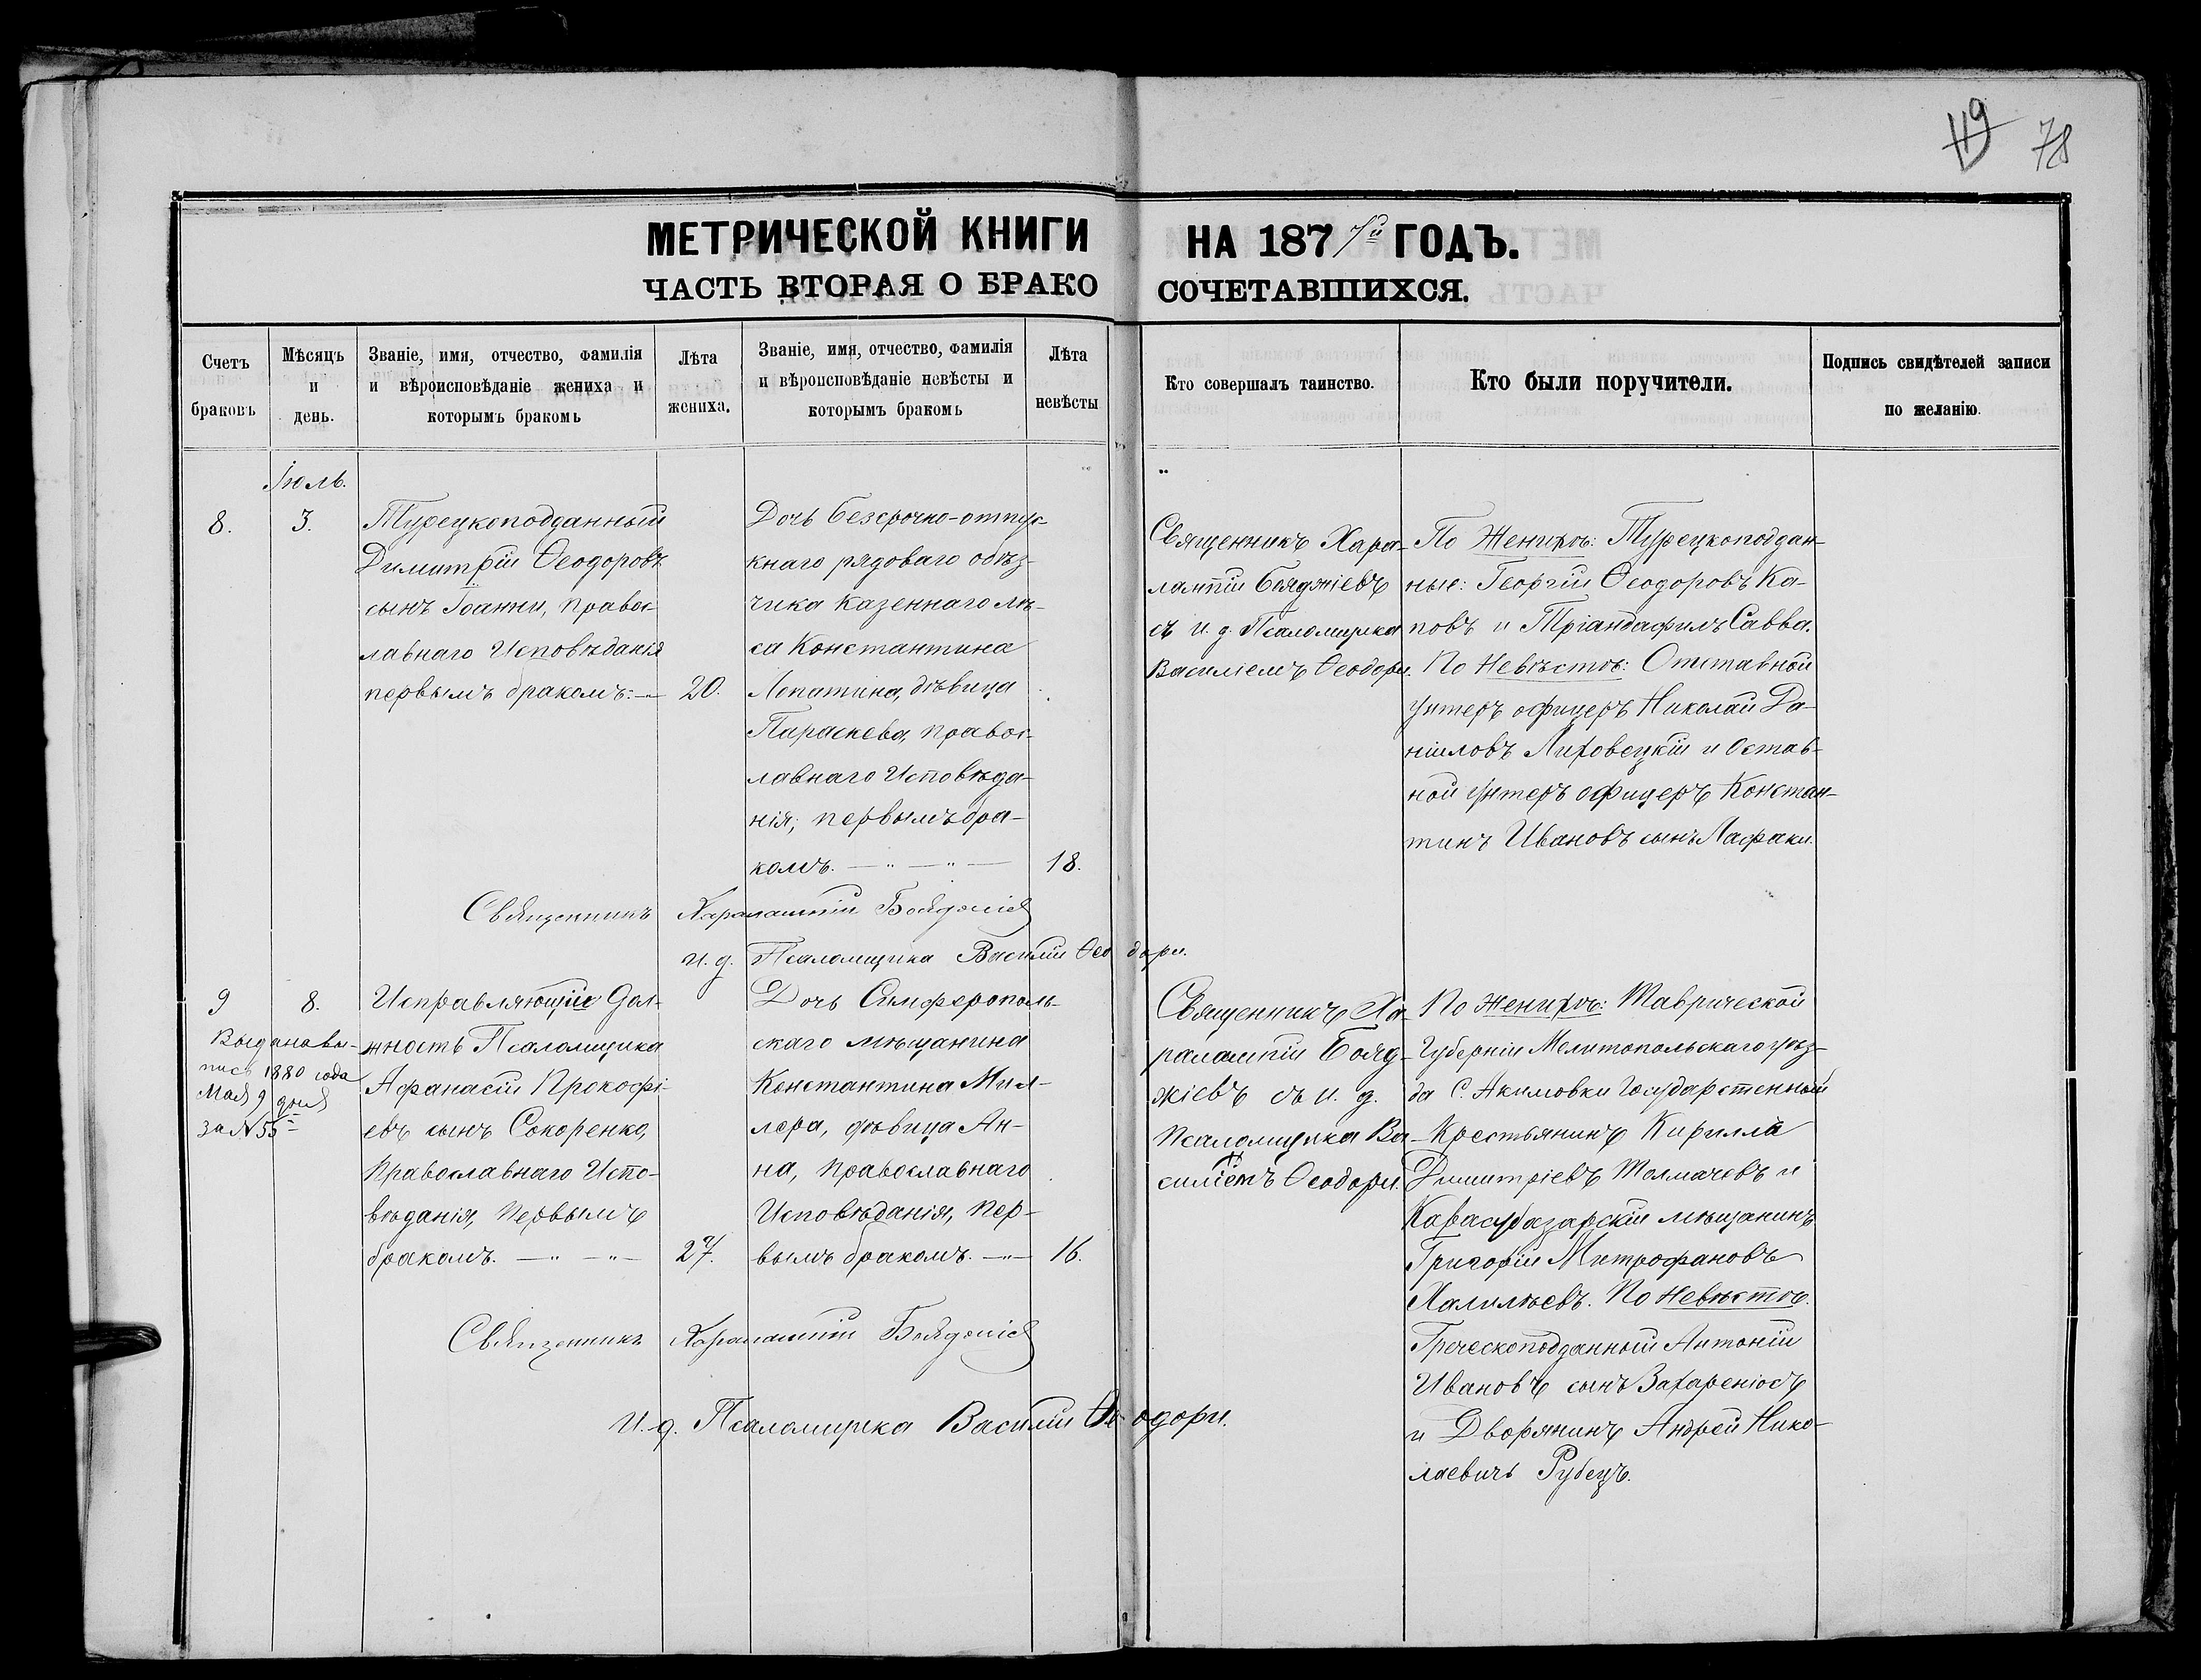 119 78
МЕТРИЧЕСКОЙ КНИГИ НА 1877й ГОДЪ.
ЧАСТЬ ВТОРАЯ О БРАКОСОЧЕТАВШИХСЯ.
Счетъ браковъ
Мѣсяцъ и день.
Званіе, имя, отчество, фамилія
и вѣроисповѣданіе жениха и
которымъ бракомъ
Лѣта жениха.
Званіе, имя, отчество, фамилія
и вѣроисповѣданіе невѣсты и
которымъ бракомъ
Лѣта невѣсты
Кто совершалъ таинство.
Кто были поручители.
Подпись свидѣтелей записи
по желанію.
Іюль.
8. 3.
Турецкоподданный
Димитрій Ѳеодоровъ
сынъ Іоанни, правос-
лавнаго Исповѣданія
первымъ бракомъ:
20.
Дочь безсрочно-отпус-
кнаго рядоваго объѣз-
чика казеннаго лѣ-
са Константина
Лопатина, дѣвица
Параскева, правос-
лавнаго Исповѣда-
нія, первымъ бра-
комъ.
18.
Священникъ Хара-
лампій Бояджіевъ
съ и. д. Псаломщика
Василіемъ Ѳеодори.
По Женихѣ: Турецкоподдан-
ные: Георгій Ѳеодоровъ Ка-
повъ и Тріандафилъ Савва.
По Невѣстѣ: Отставной
унтеръ офицеръ Николай Да-
ниловъ Лиховецкій и Остав-
ной унтеръ офицеръ Констан-
тинъ Ивановъ сынъ Лафаки.
Священникъ Харалампій Бояджіев
и. д. Псаломщика Василій Ѳеодори.
9 8.
Выдана вы-
пись 1880 года
Мая 9 дня
за №55
Исправляющій дол-
жность Псаломщика
Афанасій Прокофі-
евъ сынъ Сокоренко,
Православнаго Испо-
вѣданія, первымъ
бракомъ.
27.
Дочь Симферополь-
скаго мѣщанина
Константина Мил-
лера, дѣвица Ан-
на, православнаго
Исповѣданія, пер-
вымъ бракомъ.
16.
Священникъ Ха-
ралампій Бояд-
жіевъ съ и. д.
Псаломщика Ва-
силіемъ Ѳеодори.
По женихѣ: Таврической
Губерніи Мелитопольскаго уѣз-
да С. Акимовки Государственный
Крестьянинъ Кирилла
Димитріевъ Толмачевъ и
Карасубазарскій мѣщанинъ
Григорій Митрофановъ
Халилѣевъ. По Невѣстѣ.
Греческоподданный Антоній
Ивановъ сынъ Захареніосъ
и Дворянинъ Андрей Нико-
лаевичъ Рубецъ.
Священникъ Харалампій Бояджіев
И. д. Псаломщика Василій Ѳеодори.